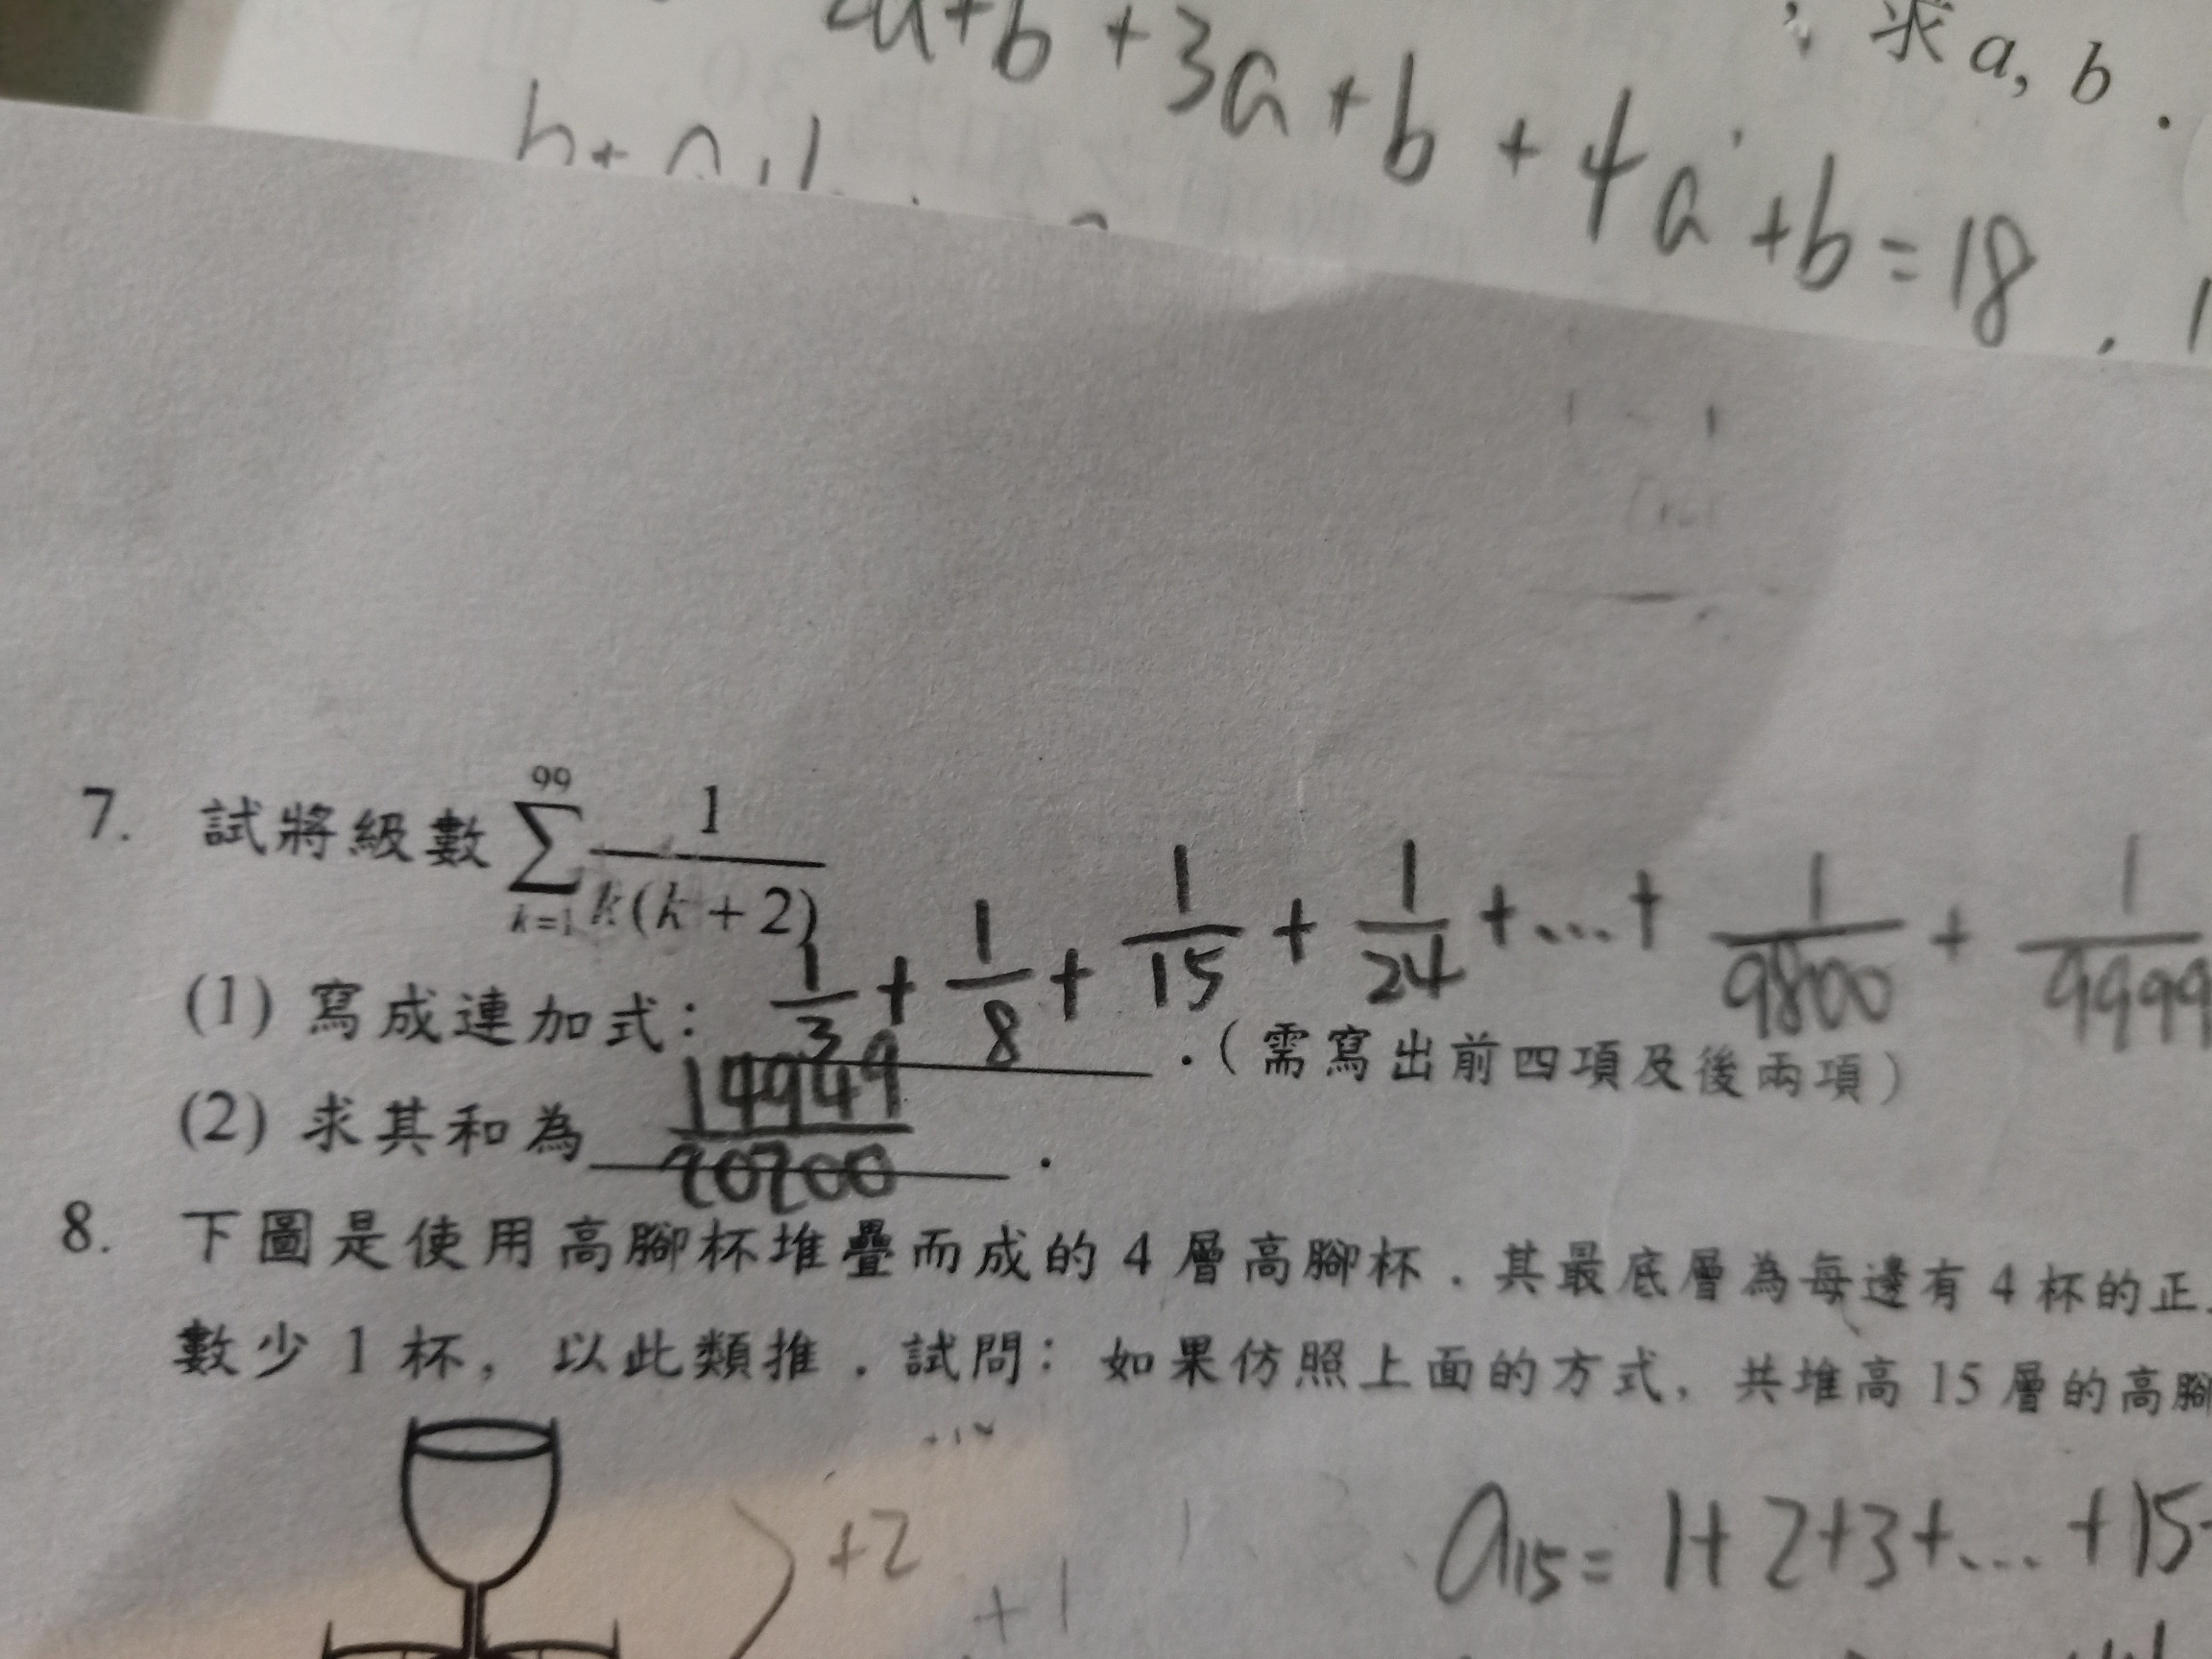 ; 求 a, b .
2a+b+3a+b+4a+b=18
7. 試將級數 \sum_{k=1}^{99} \frac{1}{k(k+2)}
(1) 寫成連加式: \frac{1}{3}+\frac{1}{8}+\frac{1}{15}+\frac{1}{24}+...+\frac{1}{9800}+\frac{1}{9999} .(需寫出前四項及後兩項)
(2) 求其和為 \frac{14949}{20200} .
8. 下圖是使用高腳杯堆疊而成的 4 層高腳杯.其最底層為每邊有 4 杯的正
數少 1 杯,以此類推.試問:如果仿照上面的方式,共堆高 15 層的高腳
+2
+1
a_{15}=1+2+3+...+15